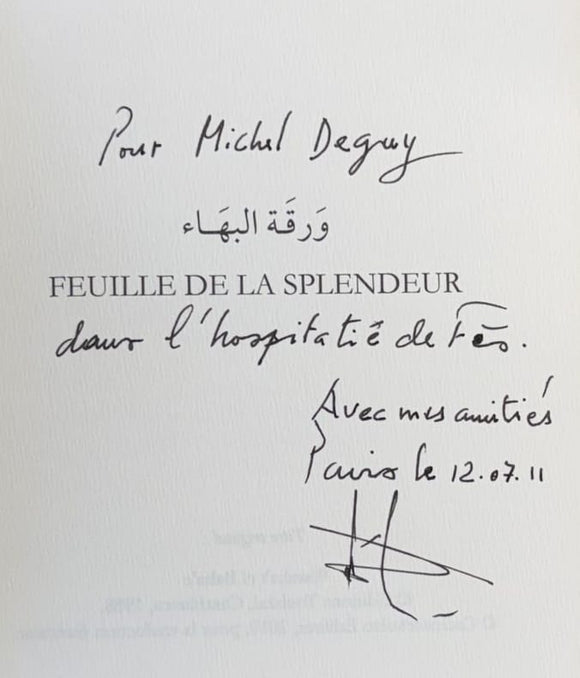 Pour Michel Deguy
وَرقَة البهَاء
FEUILLE DE LA SPLENDEUR
dans l'hospitatié de Fès.
Avec mes amitiés
Paris le 12.07.11